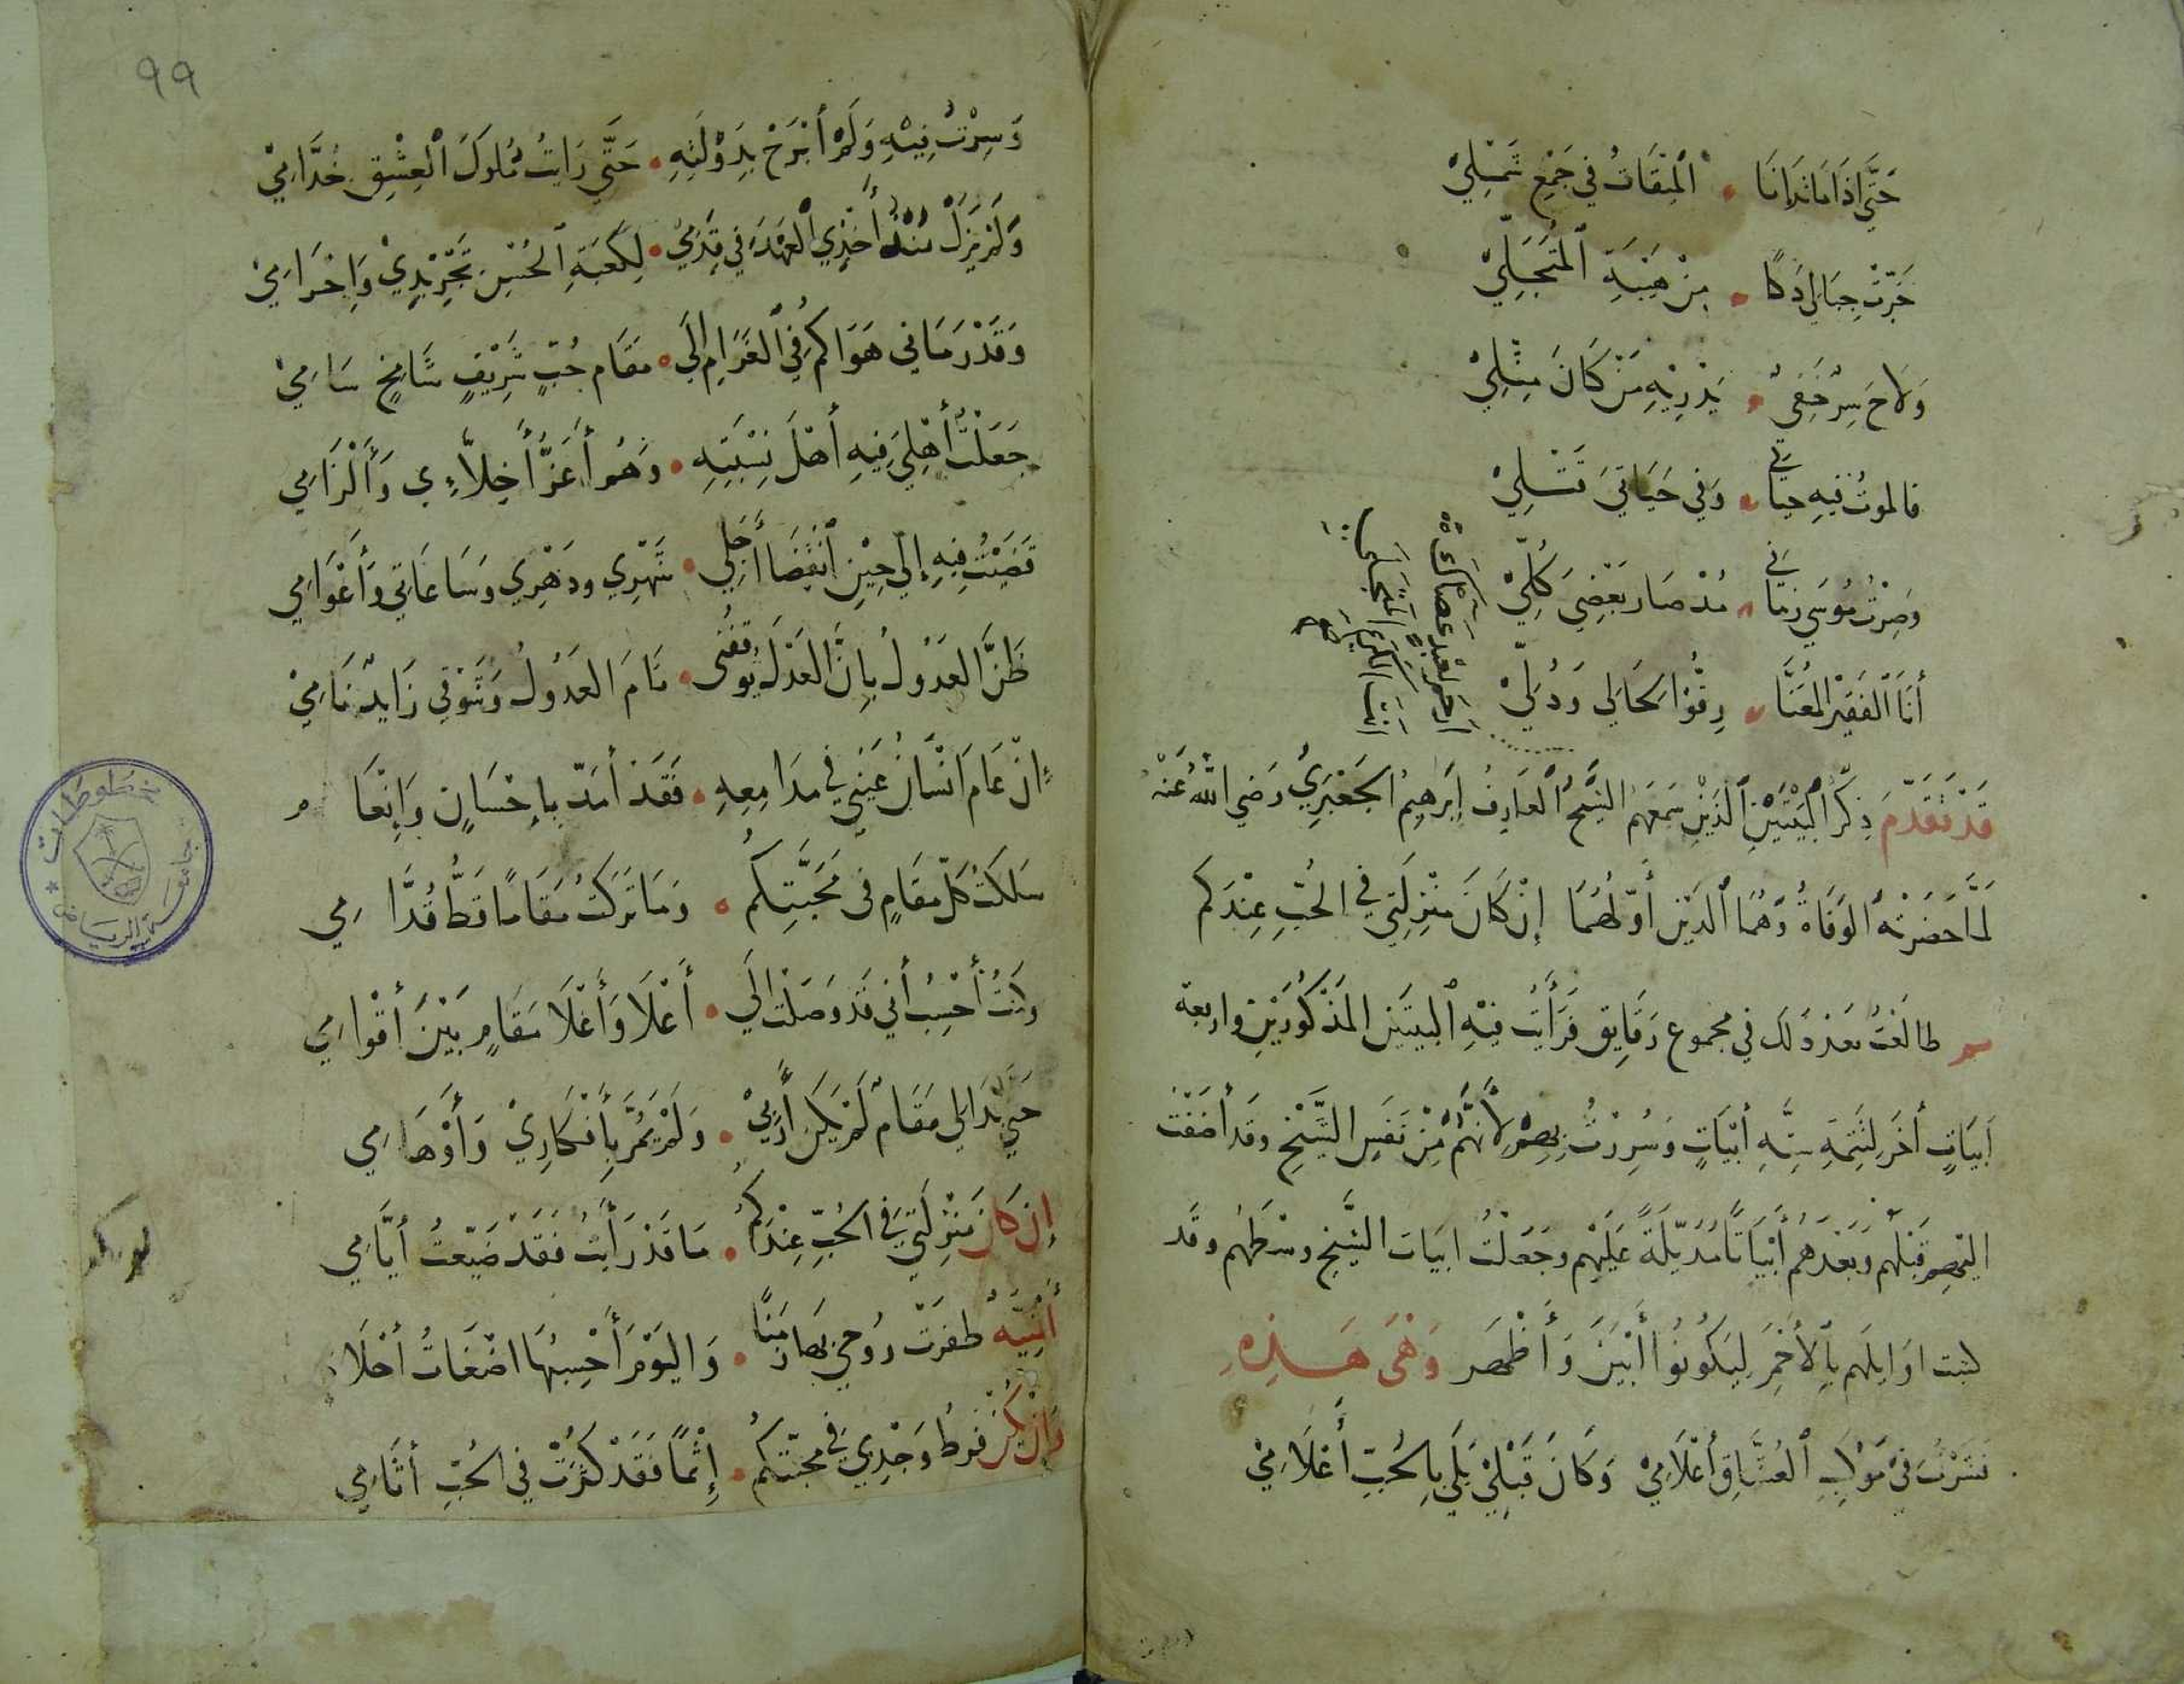 حَتَّى اِذَا مَا تَدَانَا ۰ اَلْمِيقَاتُ فِي جَمْعِ شَمْلِيْ
خَرَّتْ جِبَالِي دَكًّا ۰ مِنْ هَيْبَةِ اَلْمُتَجَلِّيْ
وَلَاحَ سِرٌّ خَفِيٌّ ۰ يَدْرِيْهِ مَنْ كَانَ مِثْلِيْ
فالموتُ فيهِ حيَاتي ۰ وَفِي حَيَاتِيَ قَتْلِيْ
وَصِرْتُ مُوسَى زمَاني ۰ مُذْ صَار بَعْضِيَ كُلِّيْ
أَنَا اَلْفَقِيْرُ الْمُعَنَّا ۰ رِقُّوْا لِحَالِي وَذُلِّيْ
قَدْ تَقَدَّمَ ذِكْرُ اَلْبَيْتَيْنِ اَلَّذَيْنِ سَمِعَهُم الشَّيْخُ اَلْعَارِفُ إِبْرَهِيمُ الجَعْبَرِيُّ رَضِيَ اللهُ عَنْهُ
لَمَّا حَضَرَتْهُ اَلوَفَاةُ وَهُمَا اَلَّذَيْنِ أَوّلُهُمَا إِنْ كَانَ مَنْزِلَتِي فِي الحُبِّ عِنْدَكُم
ثم طالَعْتُ بَعْدَ ذَلِكَ فِي مجموع رَقَايِق فَرَأَيْتُ فِيْهِ اَلبيتَيْن المَذْكُورَيْنِ واربعة
اَبيَاتٍ أُخَر لِتَتِمَّةِ سِتَّةِ أَبْيَاتٍ وَسُرِرْتُ بِهِمْ لأَنَّهُمْ مِنْ نَفَسِ الشَّيْخِ وقَد أضَفْتُ
اليْهِم قَبْلَهُم وَبَعْدَهُم أَبْيَاتًا مُذَيّلَةً عَلَيْهِم وجَعَلْتُ ابيَات الشَّيْخِ وسْطَهُم وقَد
كتبت اوَايلَهُم بِاَلْأَحْمَرِ لِيَكُونُوا أَبْيَنَ وَأَظْهَر وَهْيَ هَذِهِ
نَشَرْتُ فِيْ مَوْكِبِ اَلْعُشَّاقِ أَعْلَامِيْ وَكَانَ قَبْلِيْ بُلِي بِالْحُبِّ أَعْلَامِيْ
٩٩
وَسِرْتُ فِيْهِ وَلَمْ أَبْرَحْ بِدَوْلَتِهِ ۰ حَتَّى رَايْتُ مُلُوكَ اَلْعِشْقِ خُدَّامِيْ
وَلَمْ يَزَلْ مُنْذُ أَخْذِي اَلْعَهْدَ فِي قِدَمِيْ ۰ لِكَعْبَةِ اَلْحُسْنِ تَجْرِيْدِيْ وَإِحْرَامِيْ
وَقَدْ رَمَانِي هَوَاكُمْ فِي اَلْغَرَامِ إِلَى ۰ مقَام حُبٍّ شَرِيْفٍ شَامِخٍ سَامِيْ
جَعَلْتُ أَهْلِيَ فِيهِ أَهْلَ نِسْبَتِهِ ۰ وَهُم أَعَزُّ أَخِلَّاءِي وَأَلْزَامِي
قَضَيْتُ فِيهِ إِلَى حِيْنِ اَنقِضَا أَجَلِي ۰ شَهْرِي ودَهْرِي وَسَاعَاتِي وَأَعْوَامِي
ظَنَّ العَذُولُ بِانَّ العَذْلَ يُوقفُني ۰ نَامَ العَذُولُ وَشَوْقِي زَايدٌ نَامِيْ
إِنْ عَامَ اَنْسَانُ عَيْنِي فِي مدَامِعِهِ ۰ فَقَدْ أُمدّ بِإِحْسَانٍ وَاِنْعَا م
سَلَكتُ كلّ مقَامٍ فِي مَحَبَّتِكُمُ ۰ وَمَا تَرَكتُ مَقَامًا قَطُّ قُدَّامِي
وكُنتُ أَحْسِبُ أَنِّي قَد وَصَلْت إِلَى ۰ أَعْلَا وَأَغْلَا مقَامٍ بَيْنَ أَقْوامِي
حَتَّى بَدَا لي مَقَامٌ لَمْ يَكُن أَرَبِيْ ۰ وَلَمْ يَمُرَّ بِأَفْكَارِيْ وَأَوْهَامِي
إِنْ كَانَ مَنْزِلَتِي فِي الحُبِّ عِنْدَكُمُ ۰ مَا قَدْ رَأَيْتُ فَقَدْ ضَيّعتُ أَيَّامِي
أُمْنِيَّةٌ ظفرَتْ رُوحِي بِهَا زمَنًا ۰ وَاليَوْمَ أَحْسِبُهَا اضْغَاثُ أَحْلَام
وَإِنْ يَكُنْ فرطُ وَجْدِي فِي محَبّتِكُمُ ۰ إِثْمًا فَقَدْ كثُرَتْ فِي الحُبّ أَثَامِي
جامعة الرياض
مخطوطات